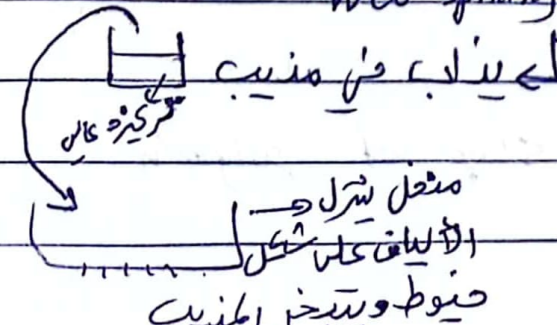 يذاب في مذيب
تركيزه عالي
منخل ينزل
الألياف على شكل
خيوط ويتبخر المذيب